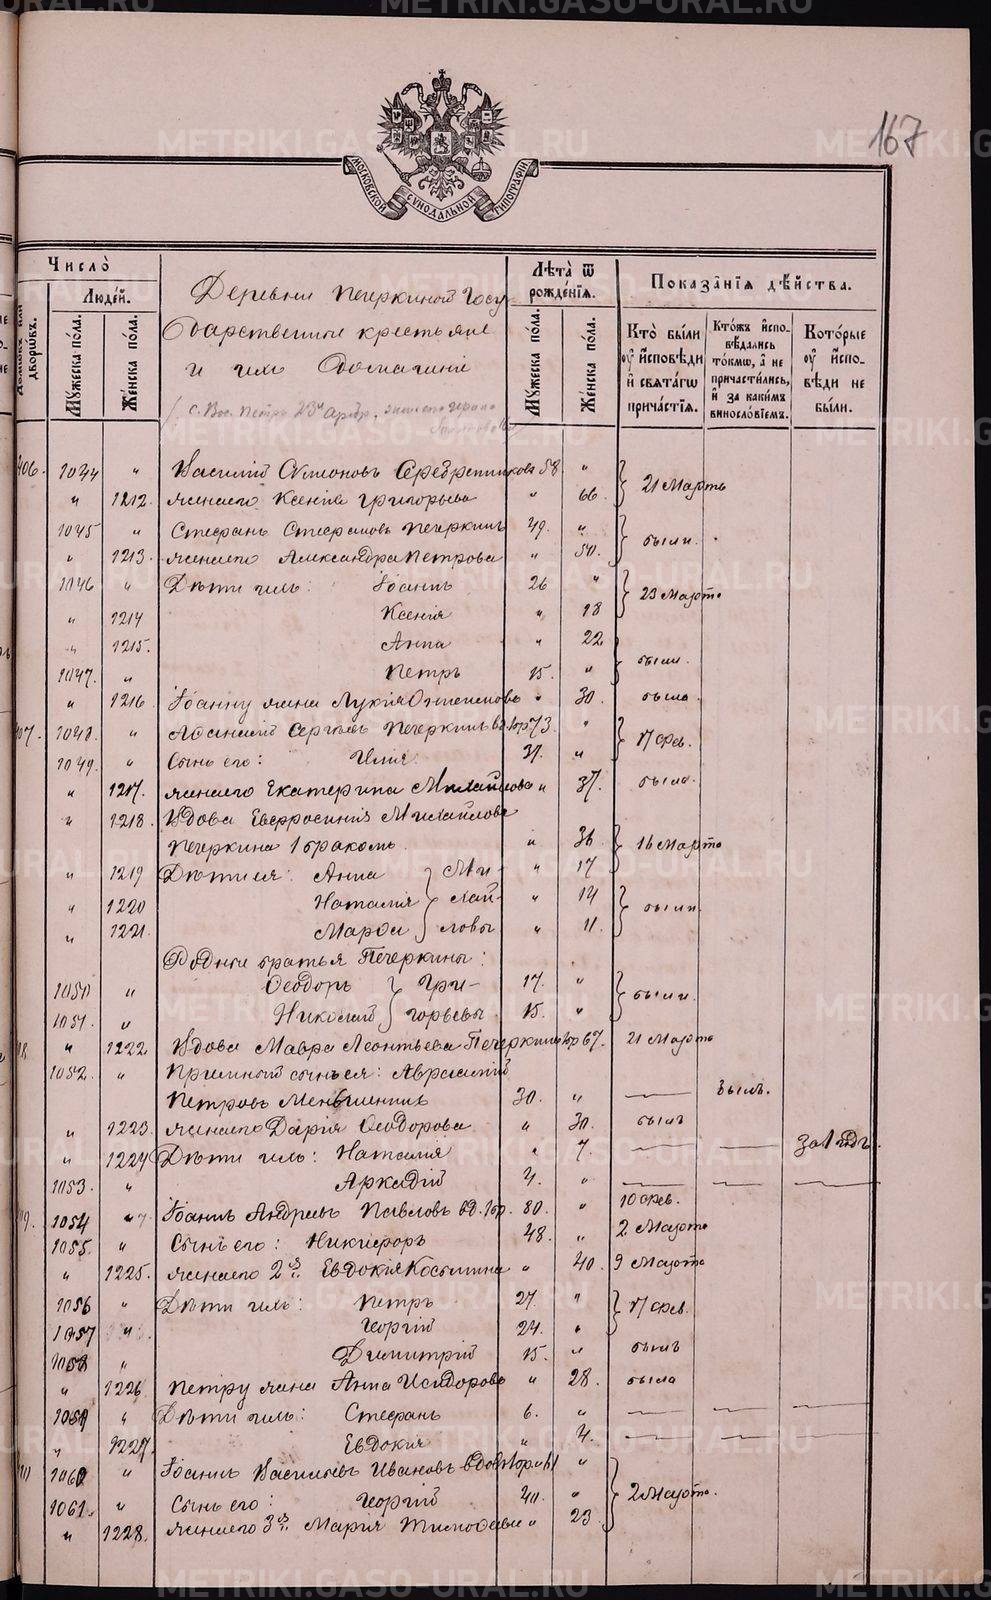 METRIKI.GASO-URAL.RU
167
МОСКОВСКОЙ СУНОДАЛЬНОЙ ТИПОГРАФІИ
Число̀
Людéй.
Мꙋжеска пóла.
Жéнска пóла.
Деревни Печеркиной Госу-
дарственные крестьяне
и ихъ домашніе
Лѣта̀ ѿ рождéнїѧ.
Мꙋжеска пóла.
Жéнска пóла.
Показáнїѧ дѣ́йства.
Ктò бы́ли ᲂу҆ и҆сповѣди и҆ свѧтáгѡ причáстїѧ.
Ктóжъ и҆спо-вѣ́дались тóкмѡ, а҆ не причасти́лись, и҆ за каки́мъ винослóвїемъ.
Котóрые ᲂу҆ и҆спо-вѣди не бы́ли.
406. 1044 " Василій Симоновъ Серебренниковъ 58 " 21 Марта
" 1212. жена его Ксенія Григорьева " 66.
1045 " Стефанъ Стефановъ Печеркинъ 49. " были.
" 1213. жена его Александра Петрова " 50.
1046 " Дѣти ихъ: Іоаннъ 26 " 23 Марта
" 1214 Ксенія " 18
" 1215. Анна " 22 были.
1047. " Петръ 15. "
" 1216 Іоанну жена Лукія " 30. была.
407. 1048. " Аѳанасій Сергѣевъ Печеркинъ вд. 1бр 73 " 17 Фев.
1049. " Сынъ его: Илія 31. "
" 1217. жена его Екатерина Михайлова " 37. была.
" 1218. Вдова Евфросинія Михайлова
Печеркина 1 бракомъ. " 36 16 Марта
" 1219 Дѣти ея: Анна Ми- " 17
" 1220 Наталія хай- " 14 были.
" 1221. Марѳа ловы " 11.
Родные братья Печеркины:
1050 " Ѳеодоръ Гри- 17. " были.
1051. " Николай горьевы 15. "
" 1222 Вдова Мавра Леонтьева Печеркина 1бр 67. 21 Марта
1052. " Пріемный сынъ ея:
Петровъ Меньшенинъ 30. " — былъ.
" 1223. жена его Дарія Ѳеодорова " 30. былъ
" 1224 Дѣти ихъ: Наталія " 7. — — За 1 годъ.
1053. " Аркадій 4. " — — —
1054 " Іоаннъ Андреевъ Павловъ вд. 1бр. 80. " 10 Фев.
1055. " Сынъ его: Никифоръ 48. " 2. Марта
" 1225. жена его 2й Евдокія Косьмина " 40. 9 Марта
1056 " Дѣти ихъ: Петръ 27. " 17 Фев.
1057 " Георгій 24. "
1058 " Димитрій 15. " былъ
" 1226. Петру жена Анна Исидорова " 28. была
1059 " Дѣти ихъ: Стефанъ 6. " — — —
" 1227. Евдокія " 4. — — —
1060 " Іоаннъ Васильевъ Ивановъ вдовъ 1бр. " 2 Марта.
1061. " Сынъ его: Георгій 40. "
" 1228. жена его 3й Марія Тимоѳеева " 23